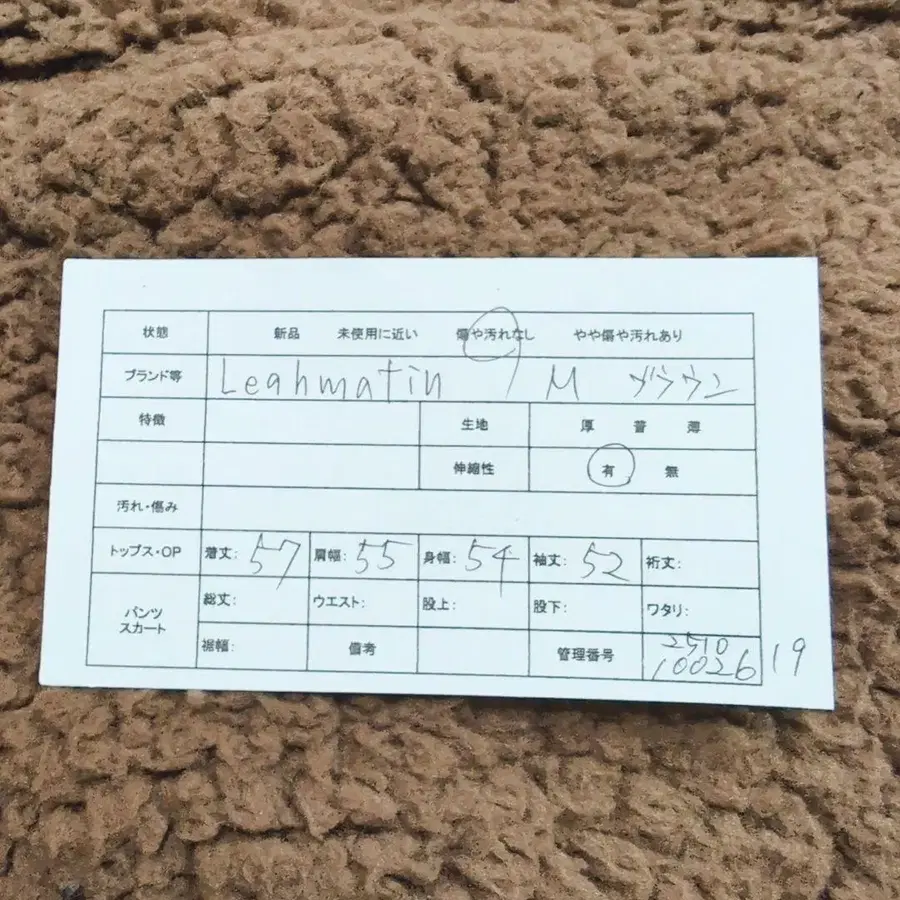 状態 新品 未使用に近い 傷や汚れなし やや傷や汚れあり
ブランド等 Leahmatin M ブラウン
特徴 生地 厚 普 薄
伸縮性 有 無
汚れ・傷み
トップス・OP 着丈: 57 肩幅: 55 身幅: 54 袖丈: 52 裄丈:
パンツ スカート 総丈: ウエスト: 股上: 股下: ワタリ:
裾幅: 備考 管理番号 2510
10026 19